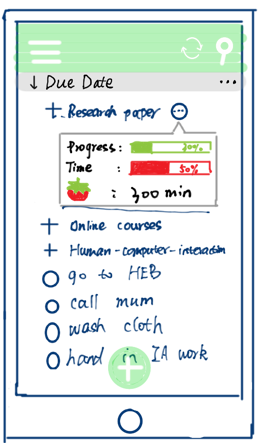 ↓ Due Date ...
+ Research paper
Progress: 20%
Time : 50%
: 300 min
+ Online courses
+ Human-computer-interaction
go to HEB
call mum
wash cloth
hand in IA work